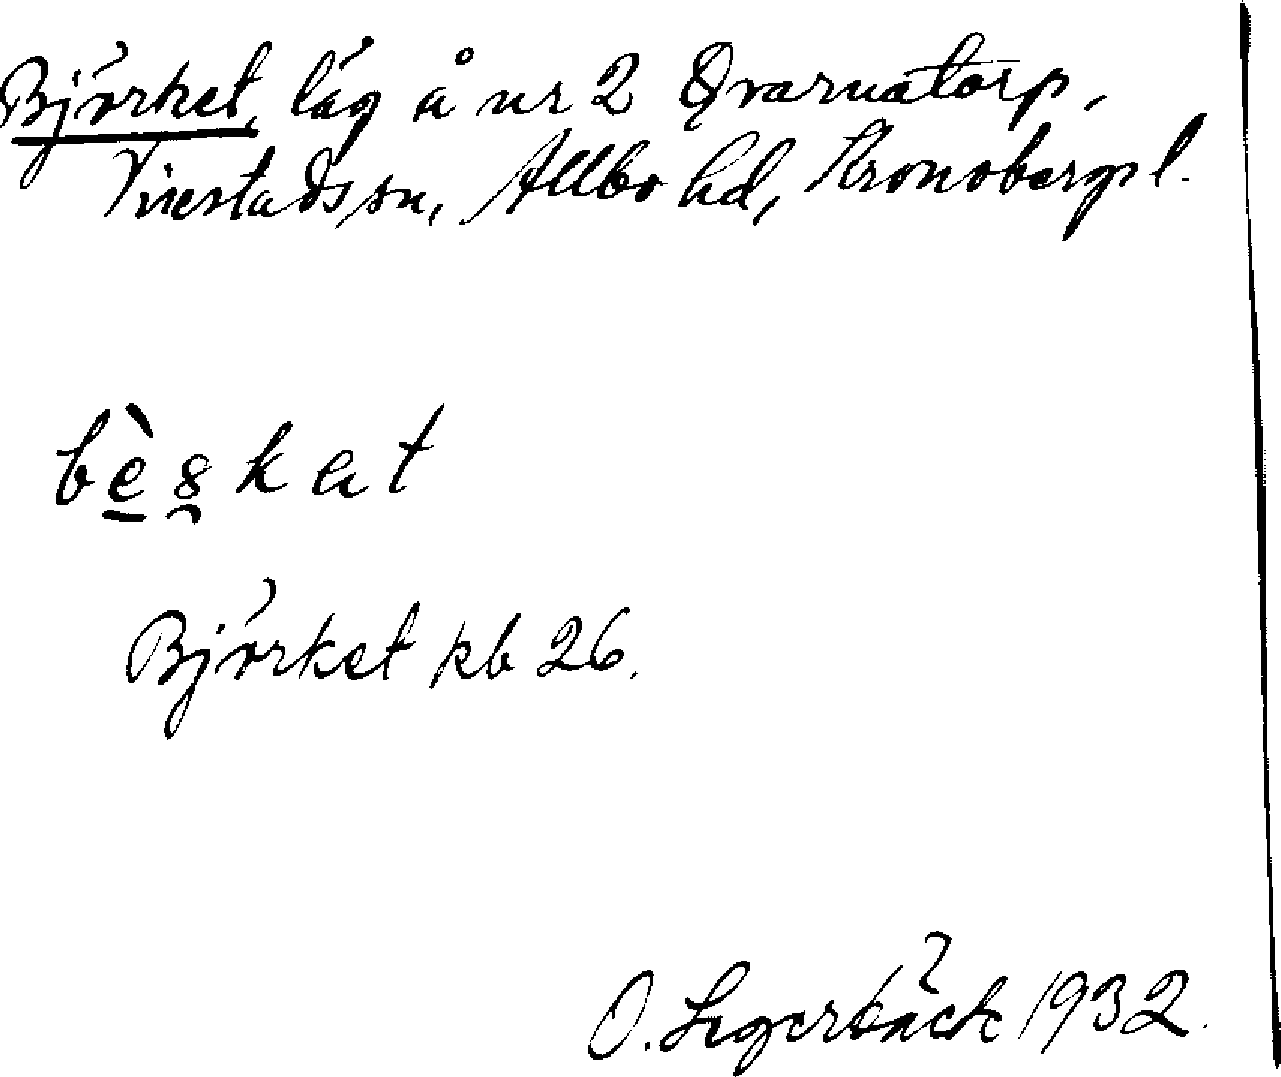 Björket, låg å nr 2 Qvarnatorp,
Virestads sn, Allbo hd, Kronobergs l.
bèskat
Björket kb 26.
O. Segerbäck 1932.